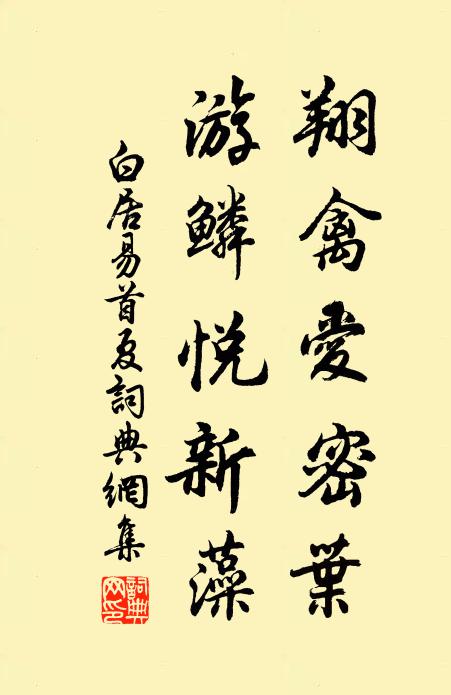 翔禽愛密葉
游鱗悅新藻
白居易首夏詞典網集
詞典网印